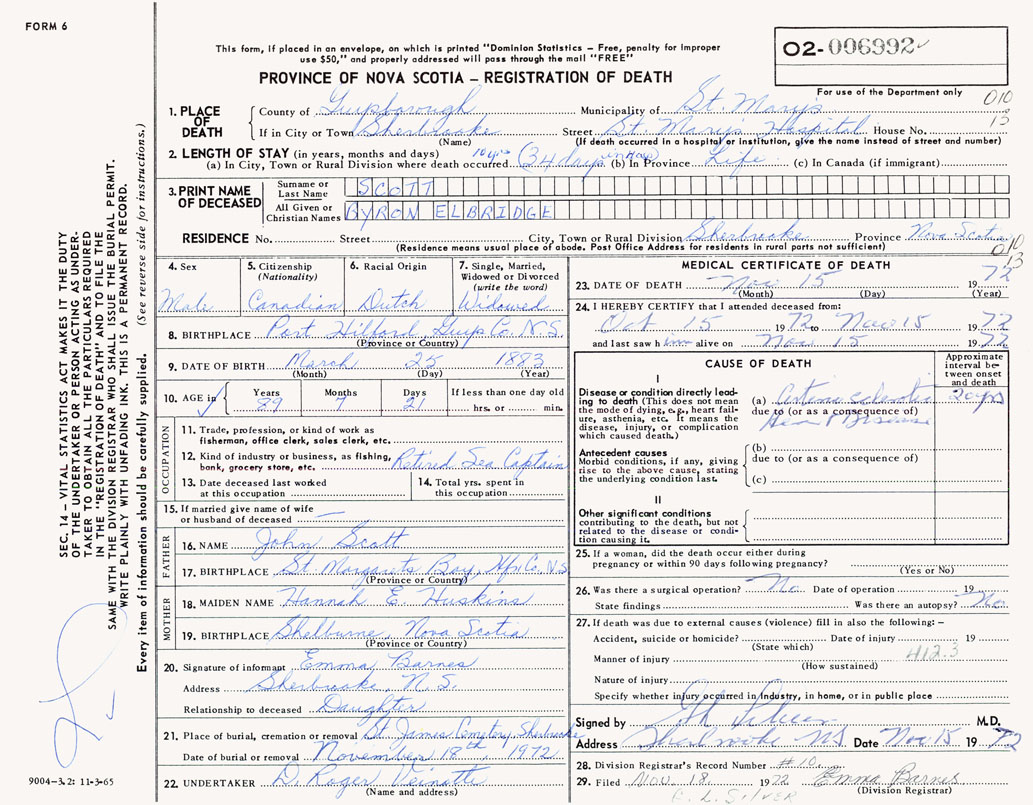 FORM 6
This form, if placed in an envelope, on which is printed "Dominion Statistics – Free, penalty for improper
use $50," and properly addressed will pass through the mail "FREE"
PROVINCE OF NOVA SCOTIA – REGISTRATION OF DEATH
02-006992
For use of the Department only
010
13
1. PLACE OF DEATH
County of Guysborough Municipality of St. Marys
If in City or Town Sherbrooke Street St. Marys Hospital House No.
(Name) (If death occurred in a hospital or institution, give the name instead of street and number)
2. LENGTH OF STAY (in years, months and days)
(a) In City, Town or Rural Division where death occurred 10 yrs (34 days in Hosp) (b) In Province Life (c) In Canada (if immigrant)
3. PRINT NAME OF DECEASED
Surname or Last Name SCOTT
All Given or Christian Names BYRON ELBRIDGE
RESIDENCE No. Street City, Town or Rural Division Sherbrooke Province Nova Scotia
(Residence means usual place of abode. Post Office Address for residents in rural parts not sufficient)
010
13
4. Sex Male
5. Citizenship (Nationality) Canadian
6. Racial Origin Dutch
7. Single, Married, Widowed or Divorced (write the word) Widowed
8. BIRTHPLACE Port Hilford, Guys Co. N.S.
(Province or Country)
9. DATE OF BIRTH March 25 1883
(Month) (Day) (Year)
10. AGE in Years 89 Months 7 Days 21 If less than one day old hrs. or min.
OCCUPATION
11. Trade, profession, or kind of work as fisherman, office clerk, sales clerk, etc.
12. Kind of industry or business, as fishing, bank, grocery store, etc. Retired Sea Captain
13. Date deceased last worked at this occupation
14. Total yrs. spent in this occupation
15. If married give name of wife or husband of deceased —
FATHER
16. NAME John Scott
17. BIRTHPLACE St Margarets Bay, Hfx Co, N.S
(Province or Country)
MOTHER
18. MAIDEN NAME Hannah E Huskins
19. BIRTHPLACE Shelburne, Nova Scotia
(Province or Country)
20. Signature of informant Emma Barnes
Address Sherbrooke, N.S.
Relationship to deceased Daughter
21. Place of burial, cremation or removal St James Cemetery, Sherbrooke
Date of burial or removal November 18th, 1972
22. UNDERTAKER D. Roger
(Name and address)
MEDICAL CERTIFICATE OF DEATH
23. DATE OF DEATH Nov 15 1972
(Month) (Day) (Year)
24. I HEREBY CERTIFY that I attended deceased from:
Oct 15 1972 to Nov 15 1972
and last saw him alive on Nov 15 1972
CAUSE OF DEATH
Approximate interval between onset and death
I
Disease or condition directly leading to death (This does not mean the mode of dying, e.g., heart failure, asthenia, etc. It means the disease, injury, or complication which caused death.)
(a) Arterio sclerotic 20 yrs
due to (or as a consequence of)
Heart Disease
Antecedent causes
Morbid conditions, if any, giving rise to the above cause, stating the underlying condition last.
(b)
due to (or as a consequence of)
(c)
II
Other significant conditions
contributing to the death, but not related to the disease or condition causing it.
25. If a woman, did the death occur either during
pregnancy or within 90 days following pregnancy?
(Yes or No)
26. Was there a surgical operation? No Date of operation 19
State findings Was there an autopsy? No
27. If death was due to external causes (violence) fill in also the following: –
Accident, suicide or homicide? Date of injury 19
(State which)
412.3
Manner of injury
(How sustained)
Nature of injury
Specify whether injury occurred in Industry, in home, or in public place
Signed by M.D.
Address Sherbrooke NS Date Nov 15 1972
28. Division Registrar's Record Number #10
29. Filed Nov. 18 1972 Emma Barnes
(Division Registrar)
SILVER
SEC. 14 – VITAL STATISTICS ACT MAKES IT THE DUTY
OF THE UNDERTAKER OR PERSON ACTING AS UNDER-
TAKER TO OBTAIN ALL THE PARTICULARS REQUIRED
IN THE "REGISTRATION OF DEATH" AND TO FILE THE
SAME WITH THE DIVISION REGISTRAR WHO SHALL ISSUE THE BURIAL PERMIT.
WRITE PLAINLY WITH UNFADING INK. THIS IS A PERMANENT RECORD.
Every item of information should be carefully supplied. (See reverse side for instructions.)
9004-3.2: 11-3-65